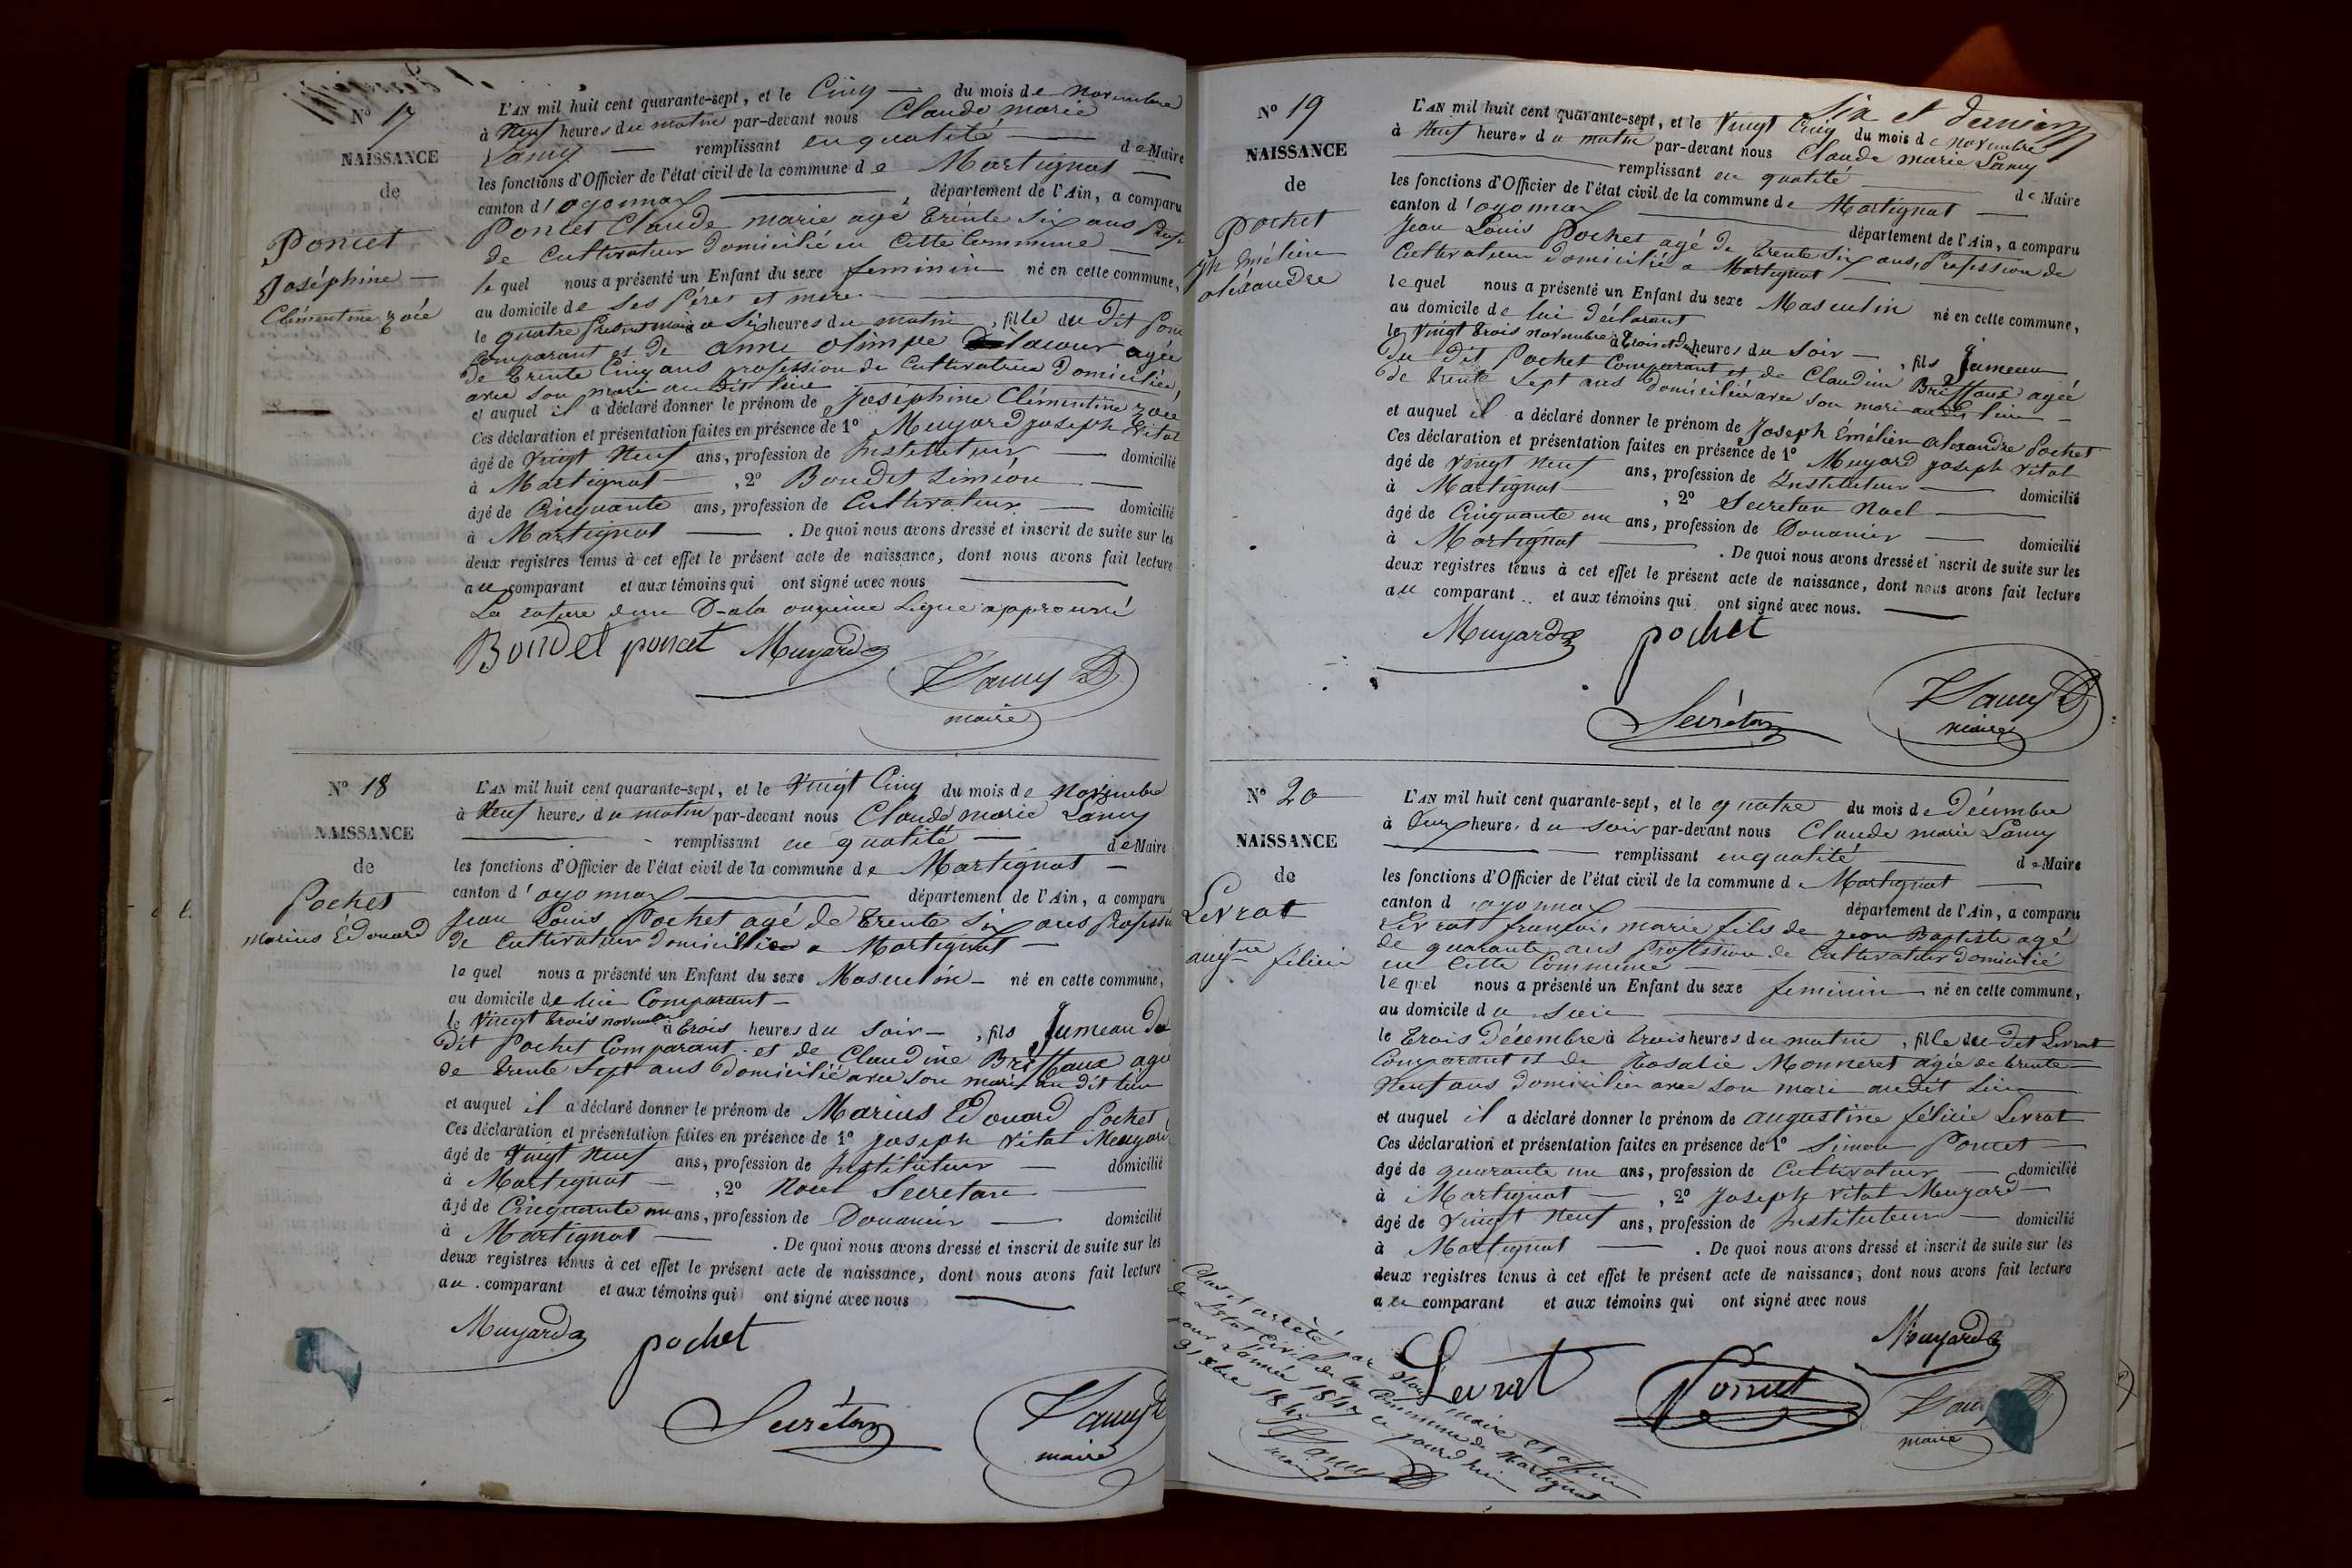 N° 17
NAISSANCE
de
Poncet
Joséphine
Clémentine zoée
L'AN mil huit cent quarante-sept, et le Cinq du mois de novembre
à neuf heures du matin par-devant nous Claude marie
Lamy remplissant en qualité de Maire
les fonctions d'Officier de l'état civil de la commune de Martignat
canton d'oyonnax département de l'Ain, a comparu
Poncet Claude marie agé trente six ans
de cultivateur domicilié en cette Commune
lequel nous a présenté un Enfant du sexe feminin né en cette commune,
au domicile de ses pére et mere
le quatre présent mois a six heures du matin, fille du dit
comparant et de anne olimpe Delacour agée
de trente Cinq ans profession de cultivatrice domiciliée
avec son mari au dit lieu
et auquel il a déclaré donner le prénom de Joséphine Clémentine zoée
Ces déclaration et présentation faites en présence de 1° Muyard joseph vital
âgé de vingt neuf ans, profession de Instituteur domicilié
à Martignat, 2° Boudet Siméon
âgé de Cinquante ans, profession de Cultivateur domicilié
à Martignat. De quoi nous avons dressé et inscrit de suite sur les
deux registres tenus à cet effet le présent acte de naissance, dont nous avons fait lecture
au comparant et aux témoins qui ont signé avec nous
La rature d'un D a la onzieme ligne approuvé
Boudet poncet Muyard
Lamy
maire
N° 18
NAISSANCE
de
Pochet
Marius Édouard
L'AN mil huit cent quarante-sept, et le vingt Cinq du mois de novembre
à neuf heures du matin par-devant nous Claude marie Lamy
remplissant en qualité de Maire
les fonctions d'Officier de l'état civil de la commune de Martignat
canton d'oyonnax département de l'Ain, a comparu
Jean Louis Pochet agé de trente six ans profession
de cultivateur domicilié a Martignat
lequel nous a présenté un Enfant du sexe Masculin né en cette commune,
au domicile de lui Comparant
le vingt trois novembre à trois heures du soir, fils Jumeau du
dit Pochet Comparant et de Claudine Briffaux agée
de trente sept ans domiciliée avec son mari au dit lieu
et auquel il a déclaré donner le prénom de Marius Edouard Pochet
Ces déclaration et présentation faites en présence de 1° Joseph vital Muyard
âgé de vingt neuf ans, profession de Instituteur domicilié
à Martignat, 2° Noel Secretan
âgé de Cinquante un ans, profession de Douanier domicilié
à Martignat. De quoi nous avons dressé et inscrit de suite sur les
deux registres tenus à cet effet le présent acte de naissance, dont nous avons fait lecture
au comparant et aux témoins qui ont signé avec nous
Muyard pochet
Secrétan Lamy
maire
Six et dernier
N° 19
NAISSANCE
de
Pochet
jph émélien
aléxandre
L'AN mil huit cent quarante-sept, et le vingt Cinq du mois de novembre
à neuf heures du matin par-devant nous Claude marie Lamy
remplissant en qualité de Maire
les fonctions d'Officier de l'état civil de la commune de Martignat
canton d'oyonnax département de l'Ain, a comparu
Jean Louis Pochet agé de trente six ans, profession de
Cultivateur domicilié a Martignat
lequel nous a présenté un Enfant du sexe Masculin né en cette commune,
au domicile de lui déclarant
le vingt trois novembre à trois et demi heures du soir, fils Jumeau
du dit Pochet Comparant et de Claudine Briffaux agée
de trente sept ans domiciliée avec son mari au dit lieu
et auquel il a déclaré donner le prénom de Joseph Émélien aléxandre Pochet
Ces déclaration et présentation faites en présence de 1° Muyard joseph vital
âgé de vingt neuf ans, profession de Instituteur domicilié
à Martignat, 2° Secretan Noel
âgé de Cinquante un ans, profession de Douanier domicilié
à Martignat. De quoi nous avons dressé et inscrit de suite sur les
deux registres tenus à cet effet le présent acte de naissance, dont nous avons fait lecture
au comparant et aux témoins qui ont signé avec nous.
Muyard pochet
Secrétan Lamy
maire
N° 20
NAISSANCE
de
Levrat
augtine félicie
L'AN mil huit cent quarante-sept, et le quatre du mois de Décembre
à deux heures du soir par-devant nous Claude marie Lamy
remplissant en qualité de Maire
les fonctions d'Officier de l'état civil de la commune de Martignat
canton d'oyonnax département de l'Ain, a comparu
Levrat françois marie fils de jean Baptiste agé
de quarante ans profession de Cultivateur domicilié
en Cette Commune
lequel nous a présenté un Enfant du sexe feminin né en cette commune,
au domicile du sien
le trois Décembre à trois heures du matin, fille du dit Levrat
Comparant et de Rosalie Monneret agée de trente
neuf ans domiciliée avec son mari audit lieu
et auquel il a déclaré donner le prénom de augustine félicie Levrat
Ces déclaration et présentation faites en présence de 1° Simon Poncet
âgé de quarante un ans, profession de Cultivateur domicilié
à Martignat, 2° Joseph vital Muyard
âgé de vingt neuf ans, profession de Instituteur domicilié
à Martignat. De quoi nous avons dressé et inscrit de suite sur les
deux registres tenus à cet effet le présent acte de naissance, dont nous avons fait lecture
au comparant et aux témoins qui ont signé avec nous
Muyard
Levrat Poncet Lamy
maire
Clos et arrêté par Nous maire et officier
de l'état civil de la Commune de Martignat
pour l'année 1847 ce jourd'hui
31 Xbre 1847
Lamy
maire